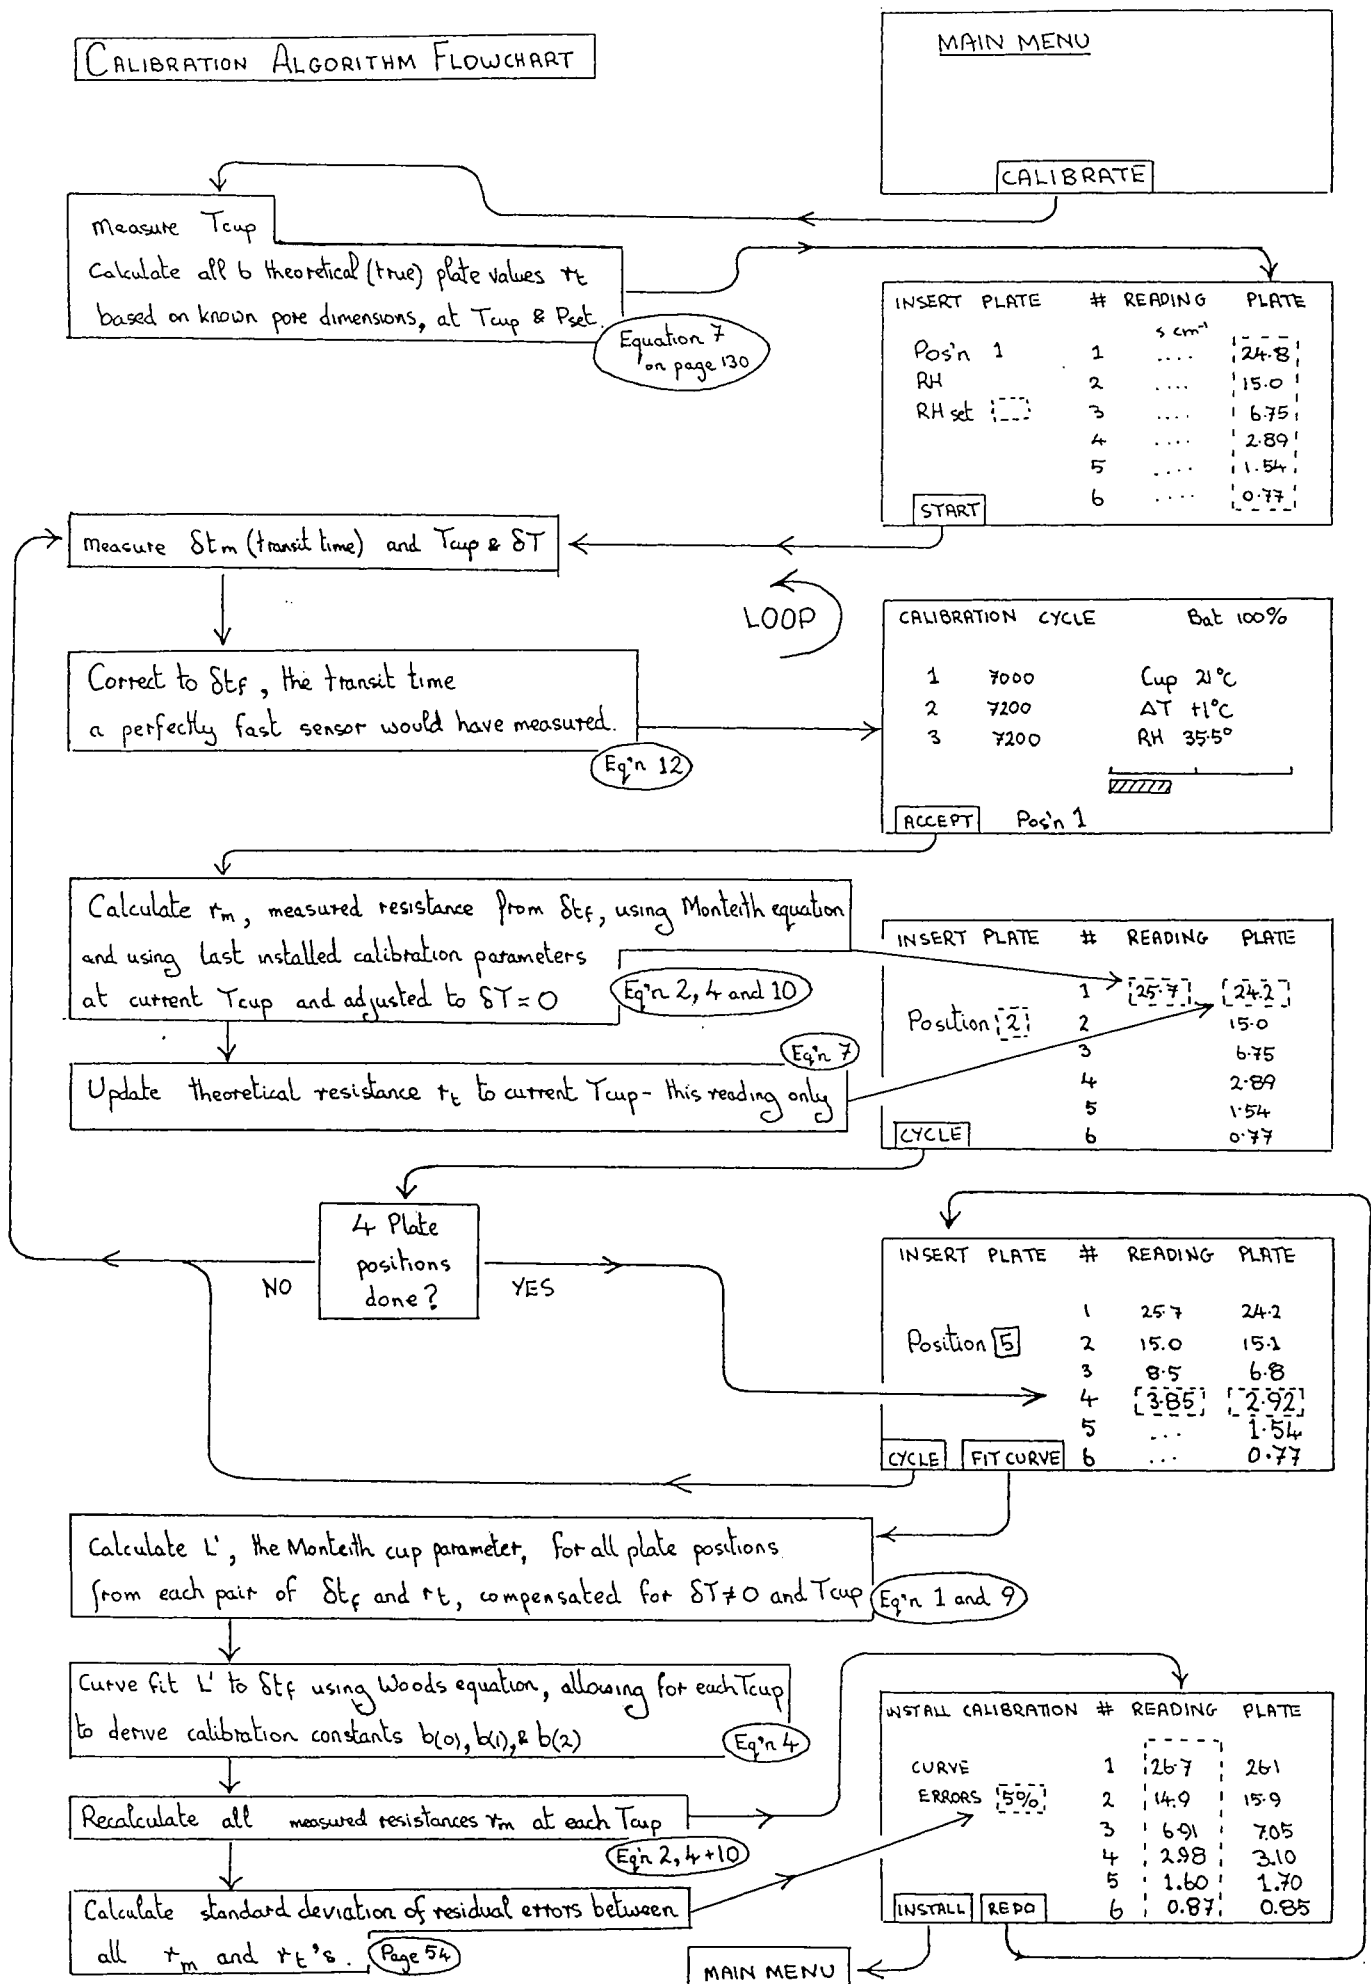 CALIBRATION ALGORITHM FLOWCHART
MAIN MENU
CALIBRATE
Measure Tcup
Calculate all 6 theoretical (true) plate values rt
based on known pore dimensions, at Tcup & Pset.
Equation 7
on page 130
INSERT PLATE # READING PLATE
s cm⁻¹
Pos'n 1 1 .... 24.8
RH 2 .... 15.0
RH set 3 .... 6.75
4 .... 2.89
5 .... 1.54
6 .... 0.77
START
Measure δtm (transit time) and Tcup & δT
LOOP
Correct to δtf, the transit time
a perfectly fast sensor would have measured.
Eq'n 12
CALIBRATION CYCLE Bat 100%
1 7000 Cup 21°C
2 7200 ΔT +1°C
3 7200 RH 35.5°
ACCEPT Pos'n 1
Calculate rm, measured resistance from δtf, using Monteith equation
and using last installed calibration parameters
at current Tcup and adjusted to δT = 0
Eq'n 2, 4 and 10
Eq'n 7
Update theoretical resistance rt to current Tcup - this reading only
INSERT PLATE # READING PLATE
1 25.7 24.2
Position 2 2 15.0
3 6.75
4 2.89
5 1.54
CYCLE 6 0.77
4 Plate
positions
done?
NO
YES
INSERT PLATE # READING PLATE
1 25.7 24.2
Position 5 2 15.0 15.1
3 8.5 6.8
4 3.85 2.92
5 ... 1.54
CYCLE FIT CURVE 6 ... 0.77
Calculate L', the Monteith cup parameter, for all plate positions
from each pair of δtf and rt, compensated for δT≠0 and Tcup
Eq'n 1 and 9
Curve fit L' to δtf using Woods equation, allowing for each Tcup
to derive calibration constants b(0), b(1), & b(2)
Eq'n 4
Recalculate all measured resistances rm at each Tcup
Eq'n 2, 4+10
Calculate standard deviation of residual errors between
all rm and rt's.
Page 54
INSTALL CALIBRATION # READING PLATE
CURVE 1 26.7 26.1
ERRORS 5% 2 14.9 15.9
3 6.91 7.05
4 2.98 3.10
5 1.60 1.70
INSTALL REDO 6 0.87 0.85
MAIN MENU